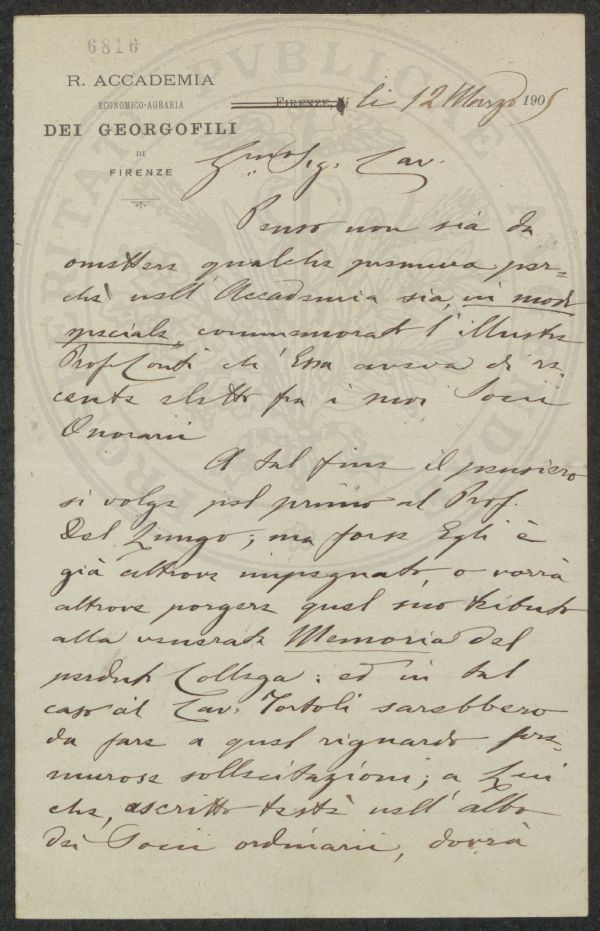 6816
R. ACCADEMIA
ECONOMICO-AGRARIA
DEI GEORGOFILI
DI
FIRENZE
FIRENZE, li 12 Marzo 1905
Sig. Cav.
Penso non sia da
omettere qualche premura per=
chè nell' Accademia sia, in modo
speciale, commemorato l' illustre
Prof. Conti ch' Essa aveva di re
cente eletto fra i suoi Socii
Onorarii
A tal fine il pensiero
si volge pel primo al Prof.
Del Lungo; ma forse Egli è
già altrove impegnato, o vorrà
altrove porgere quel suo tributo
alla venerata Memoria del
perduto Collega: ed in tal
caso al Cav. Tortoli sarebbero
da fare a quel riguardo pre=
murose sollecitazioni; a Lui
che, ascritto testè nell' albo
dei Socii ordinarii, dovrà